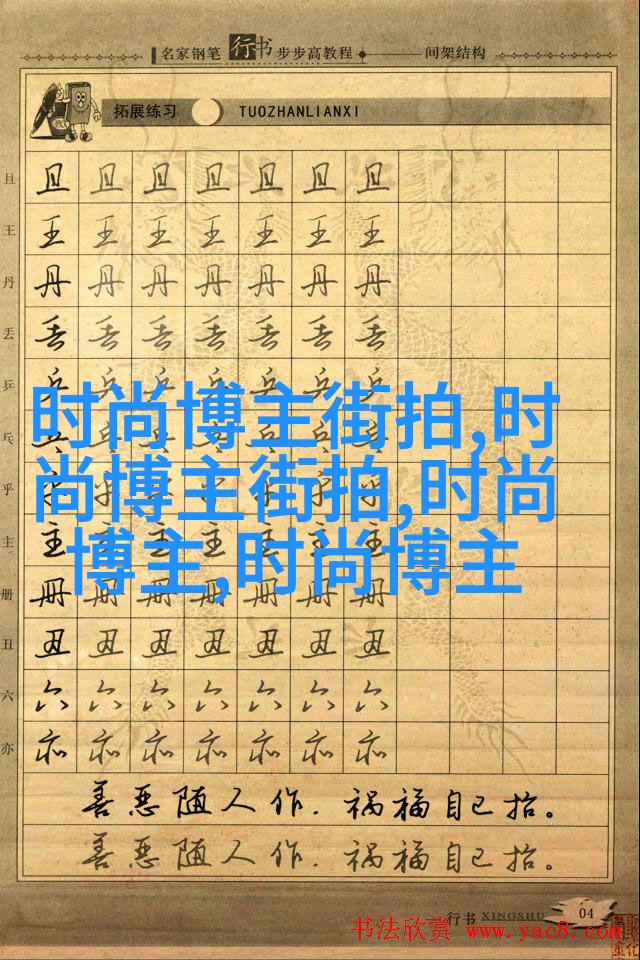 名家钢笔行书步步高教程 间架结构
拓展练习 TUOZHANLIANXI
且 且 且 且 且 且 且 且
王 王 王 王 王 王 王 王
丹 丹 丹 丹 丹 丹 丹 丹
丢 丢 丢 丢 丢 丢 丢 丢
乒 乒 乒 乒 乒 乒 乒 乒
时尚博主街拍,时
乓 乓 乓 乓 乓 乓 乓 乓
尚博主街拍,时尚
乎 乎 乎 乎 乎 乎 乎 乎
主 主 主 主 主 主 主 主
博主,时尚博主
册 册 册 册 册 册 册 册
丑 丑 丑 丑 丑 丑 丑 丑
六 六 六 六 六 六 六 六
亦 亦 亦 亦 亦 亦 亦 亦
善恶随人作.祸福自己招。
善恶随人作.祸福自己招。
行书 XINGSHU 04
书法欣赏 www.yac8.com